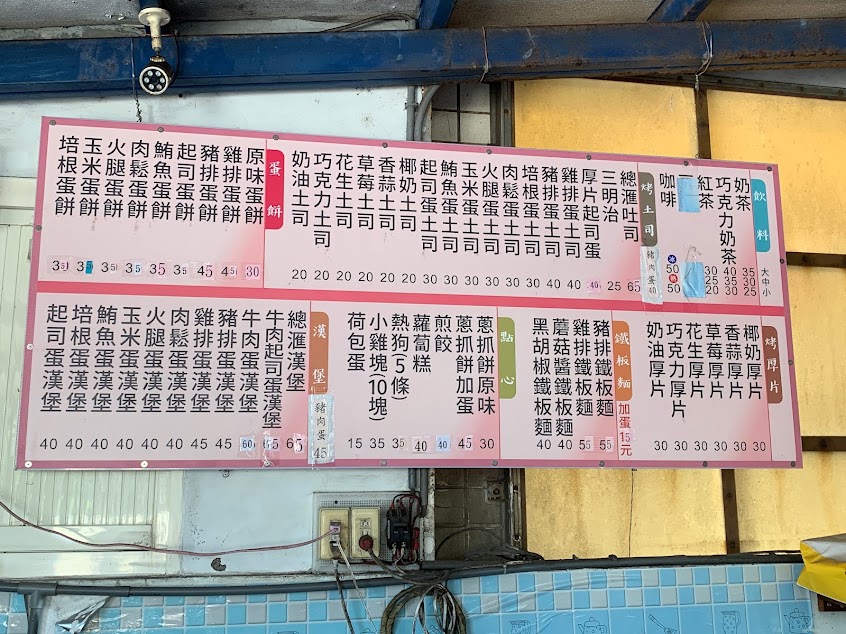 飲料
大中小
奶茶 35 30 25
巧克力奶茶 40 35 30
紅茶 30 25 20
咖啡 冰50 熱50
烤土司
豬肉蛋40
總匯吐司 65
三明治 25
厚片起司蛋 40
雞排蛋土司 40
豬排蛋土司 40
培根蛋土司 30
肉鬆蛋土司 30
火腿蛋土司 30
玉米蛋土司 30
鮪魚蛋土司 30
起司蛋土司 30
椰奶土司 20
香蒜土司 20
草莓土司 20
花生土司 20
巧克力土司 20
奶油土司 20
蛋餅
原味蛋餅 30
雞排蛋餅 45
豬排蛋餅 45
起司蛋餅 35
鮪魚蛋餅 35
肉鬆蛋餅 35
火腿蛋餅 35
玉米蛋餅 35
培根蛋餅 35
烤厚片
椰奶厚片 30
香蒜厚片 30
草莓厚片 30
花生厚片 30
巧克力厚片 30
奶油厚片 30
鐵板麵
加蛋15元
豬排鐵板麵 55
雞排鐵板麵 55
蘑菇醬鐵板麵 40
黑胡椒鐵板麵 40
點心
蔥抓餅原味 30
蔥抓餅加蛋 45
煎餃 40
蘿蔔糕 40
熱狗(5條) 35
小雞塊(10塊) 35
荷包蛋 15
漢堡
豬肉蛋45
總匯漢堡 65
牛肉起司蛋漢堡 65
牛肉蛋漢堡 60
豬排蛋漢堡 45
雞排蛋漢堡 45
肉鬆蛋漢堡 40
火腿蛋漢堡 40
玉米蛋漢堡 40
鮪魚蛋漢堡 40
培根蛋漢堡 40
起司蛋漢堡 40